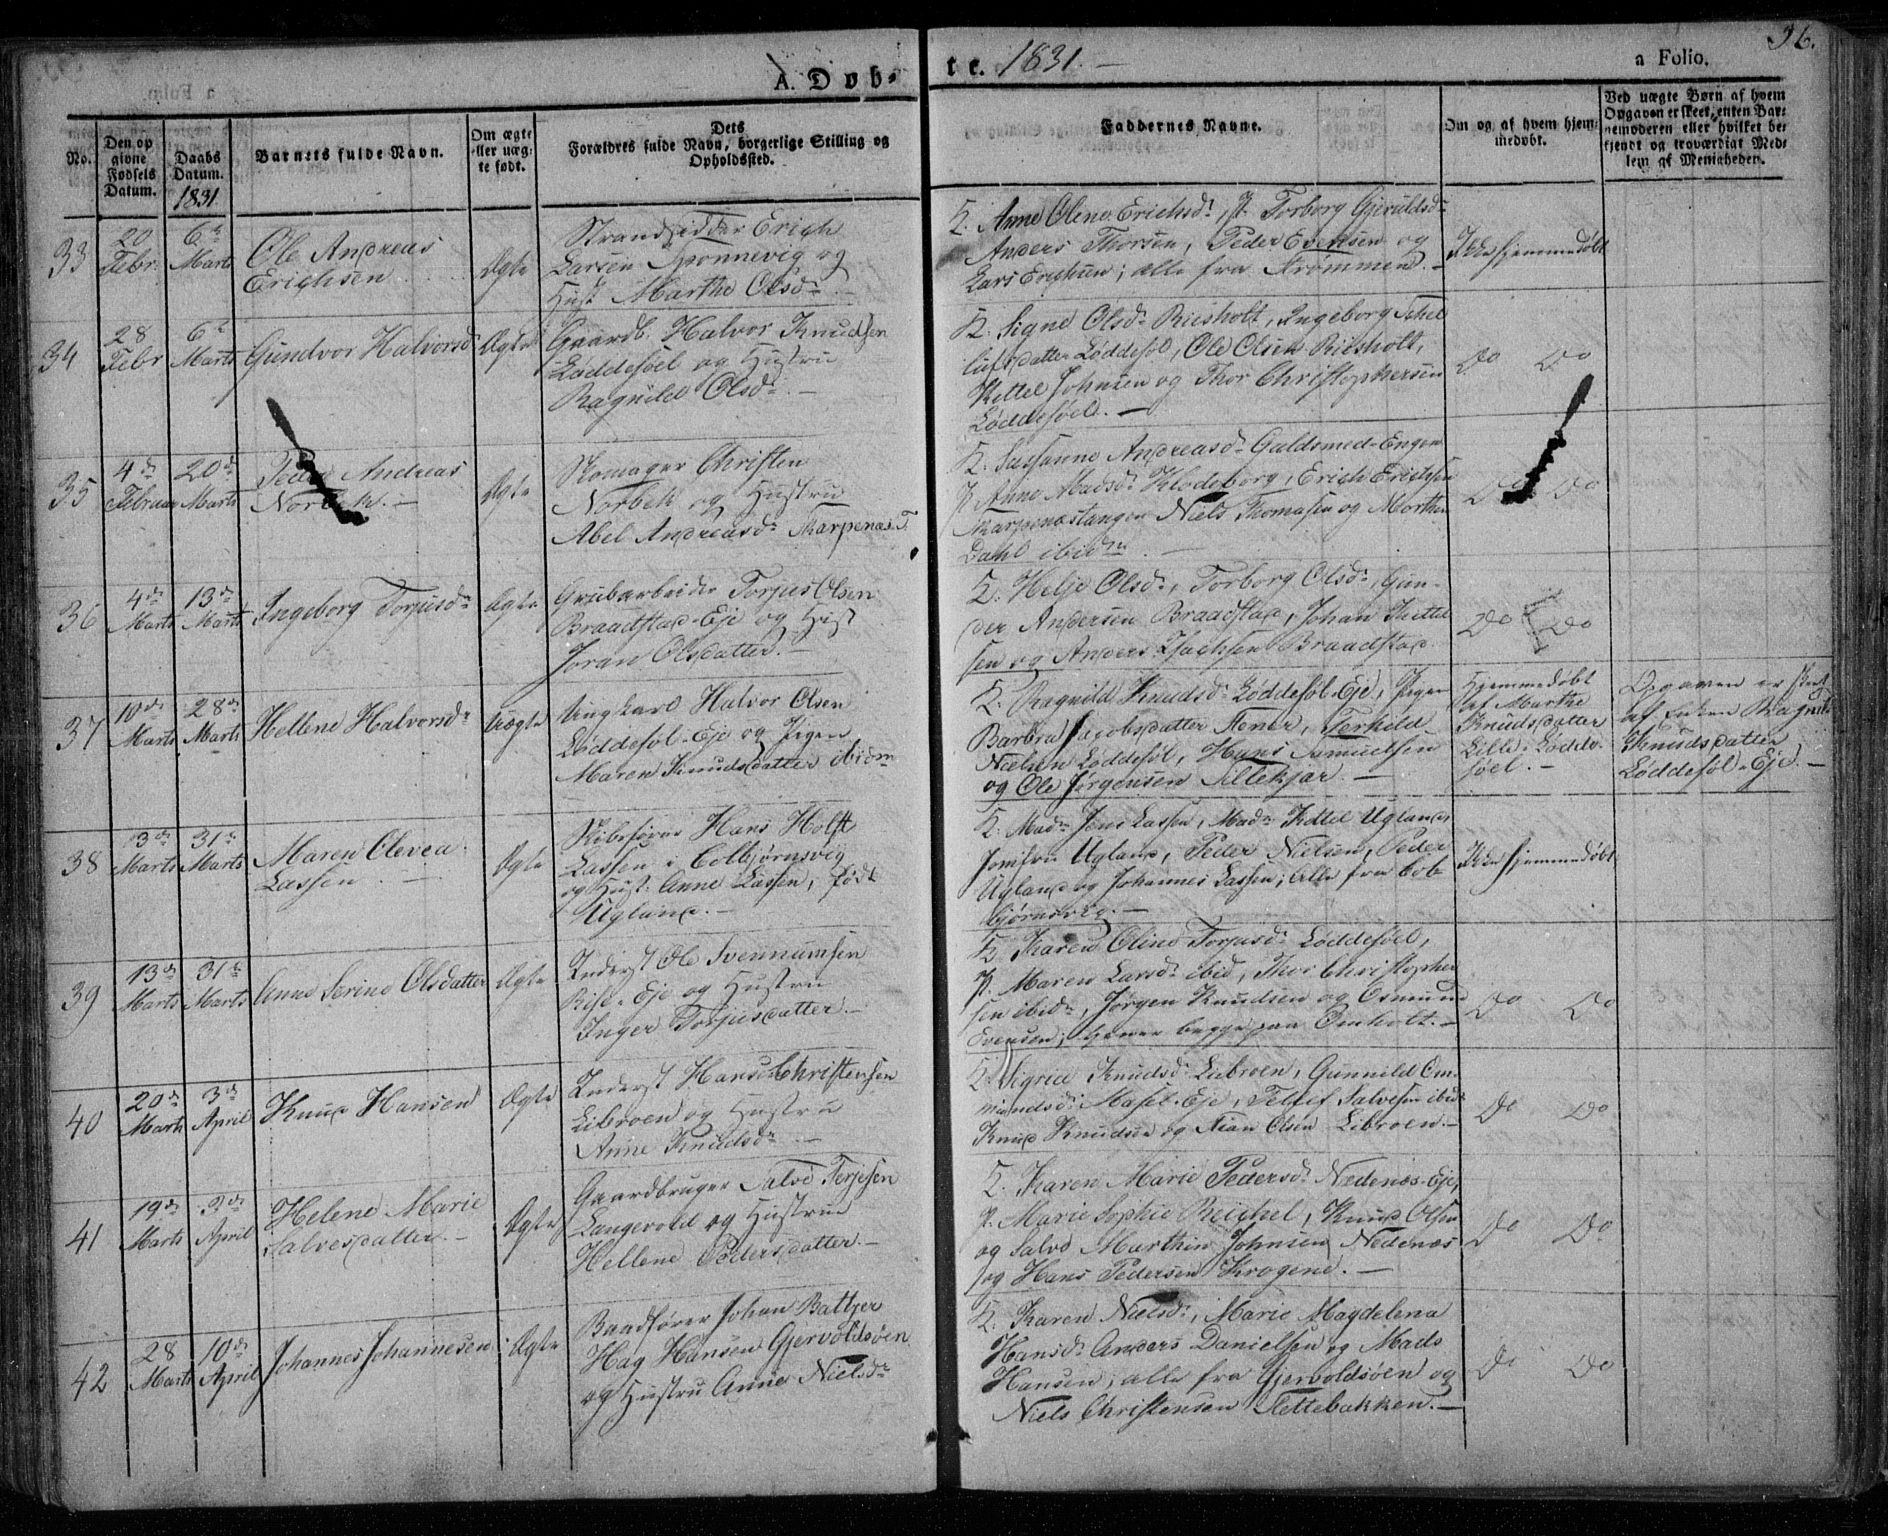 A. Døb-
te. 1831. —
a Folio.
36.
No.
Den op
givne
Fødsels
Datum.
Daabs
Datum.
1831
Barnets fulde Navn.
Om ægte
eller uæg-
te født.
Dets
Forældres fulde Navn, borgerlige Stilling og
Opholdssted.
Faddernes Navne.
Om og af hvem hjem-
medøbt.
Ved uægte Børn af hvem
Opgaven er skeet, enten Bar-
nemoderen eller hvilket be-
kjendt og troværdigt Med-
lem af Menigheden.
33
20
Febr.
6te
Marts
Ole Andreas
Erichsen
Ægte
Strandsidder Erich
Larsen Spønnevig og
Hust. Marthe Olsdr. —
K. Anne Olene Erichsdr., P. Torborg Gjeruldsdr.
Anders Thorsen, Peder Evensen og
Lars Erichsen; alle fra Strømmen. —
Ikke hjemmedøbt
34
28
Febr
6te
Marts
Gundvor Halvorsd
Ægte
Gaardb. Halvor Knudsen
Løddesøel og Hustru
Ragnild Olsdr. —
K. Signe Olsdr. Riisholt, Ingeborg
datter Løddesøl, Ole Olsen Riisholt,
Kittel Johnsen og Thor Christophersen
Løddesøel. —
Do Do
35
4de
Februar
20de
Marts
Peder Andreas
Norbek. —
Ægte
Skomager Christen
Norbek og Hustru
Abel Andreasdr. Skarpenæs T.
K. Susanne Andreasdr. Guldsmed-Engen
P. Anne Madsdr. Klodeborg, Erich Erichsen
Skarpenæstangen Niels Thomasen og Morthen
Dahl ibidm. —
Do Do
36
4de
Marts
13de
Marts
Ingeborg Torjusdr.
Ægte
Grubarbeider Torjus Olsen
Braadstad-Eje og Hust
Joran Olsdatter. —
K. Helje Olsdr., Torborg Olsdr., Gun-
der Andersen Braadstad, Johan Kittel
sen og Anders Isachsen Braadstad.
Do Do
37
10de
Marts
28de
Marts
Hellene Halvorsdr.
Uægte
Ungkarl Halvor Olsen
Løddesøl-Eje og Pigen
Maren Knudsdatter ibidm
K. Ragnild Knudsdr. Løddesøl-Eje, Pigen
Barbra Jacobsdatter Stener, Torkild
Nielsen Løddesøl, Hans Samuelsen
og Ole Jørgensen Tellekjær. —
Hjemmedøbt
af Marthe
Knudsdatter
Lille-Lødde-
søel. —
Opgaven er skeet
af Enken Ragnil
Knudsdatter
Løddesøl-Eje. —
38
3de
Marts
31te
Marts
Maren Olevea
Lassen. —
Ægte
Skibsfører Hans Holst
Lassen i Colbjørnsvig
og Hust: Anne Lassen, født
Ugland. —
K. Madm Jens Lassen, Madm Kittel Ugland,
Jomfru Ugland, Peder Nielsen, Peder
Ugland og Johannes Lassen; alle fra Col-
bjørnsvig. —
Ikke hjemmedøbt
39
13de
Marts
31te
Marts
Anne Serine Olsdatter
Ægte
Inderst Ole Svennumsen
Rise-Eje og Hustru
Inger Torjusdatter. —
K. Karen Oline Torjusdr. Løddesøel,
P. Maren Larsdr. ibid, Thor Christopher
sen ibidm, Jørgen Knudsen og Osmund
Evensen, begge paa Omholt. —
Do Do
40
20de
Marts
3de
April
Knud Hansen
Ægte
Inderst Hans Christensen
Libroen og Hustru
Anne Knudsdr. —
K. Sigrid Knudsdr. Libroen, Gunnild Os-
mundsdr. Aasel-Eje, Tellef Salvesen ibidm
Knud Knudsen og Stian Olsen Libroen. —
Do Do
41
19de
Marts
3de
April
Helene Marie
Salvesdatter. —
Ægte
Gaardbruger Salve Terjesen
Langevold og Hustru
Hellene Pedersdatter. —
K. Karen Marie Pedersdr. Nedenæs-Eje,
P. Marie Sophie Reichel, Knud Olsen
og Salve Marthin Johnsen Nedenæs
og Hans Pedersen Krogene. —
Do Do
42
28
Marts
10de
April
Johannes Johannesen
Ægte
Baadfører Johan Battjer
Hag Hansen Gjervoldsøen
og Hustru Anne Nielsdr.
K. Karen Nielsdr., Marie Magdelena
Hansdr. Anders Danielsen og Mads
Hansen, alle fra Gjervoldsøen og
Niels Christensen Slettebakken. —
Do Do